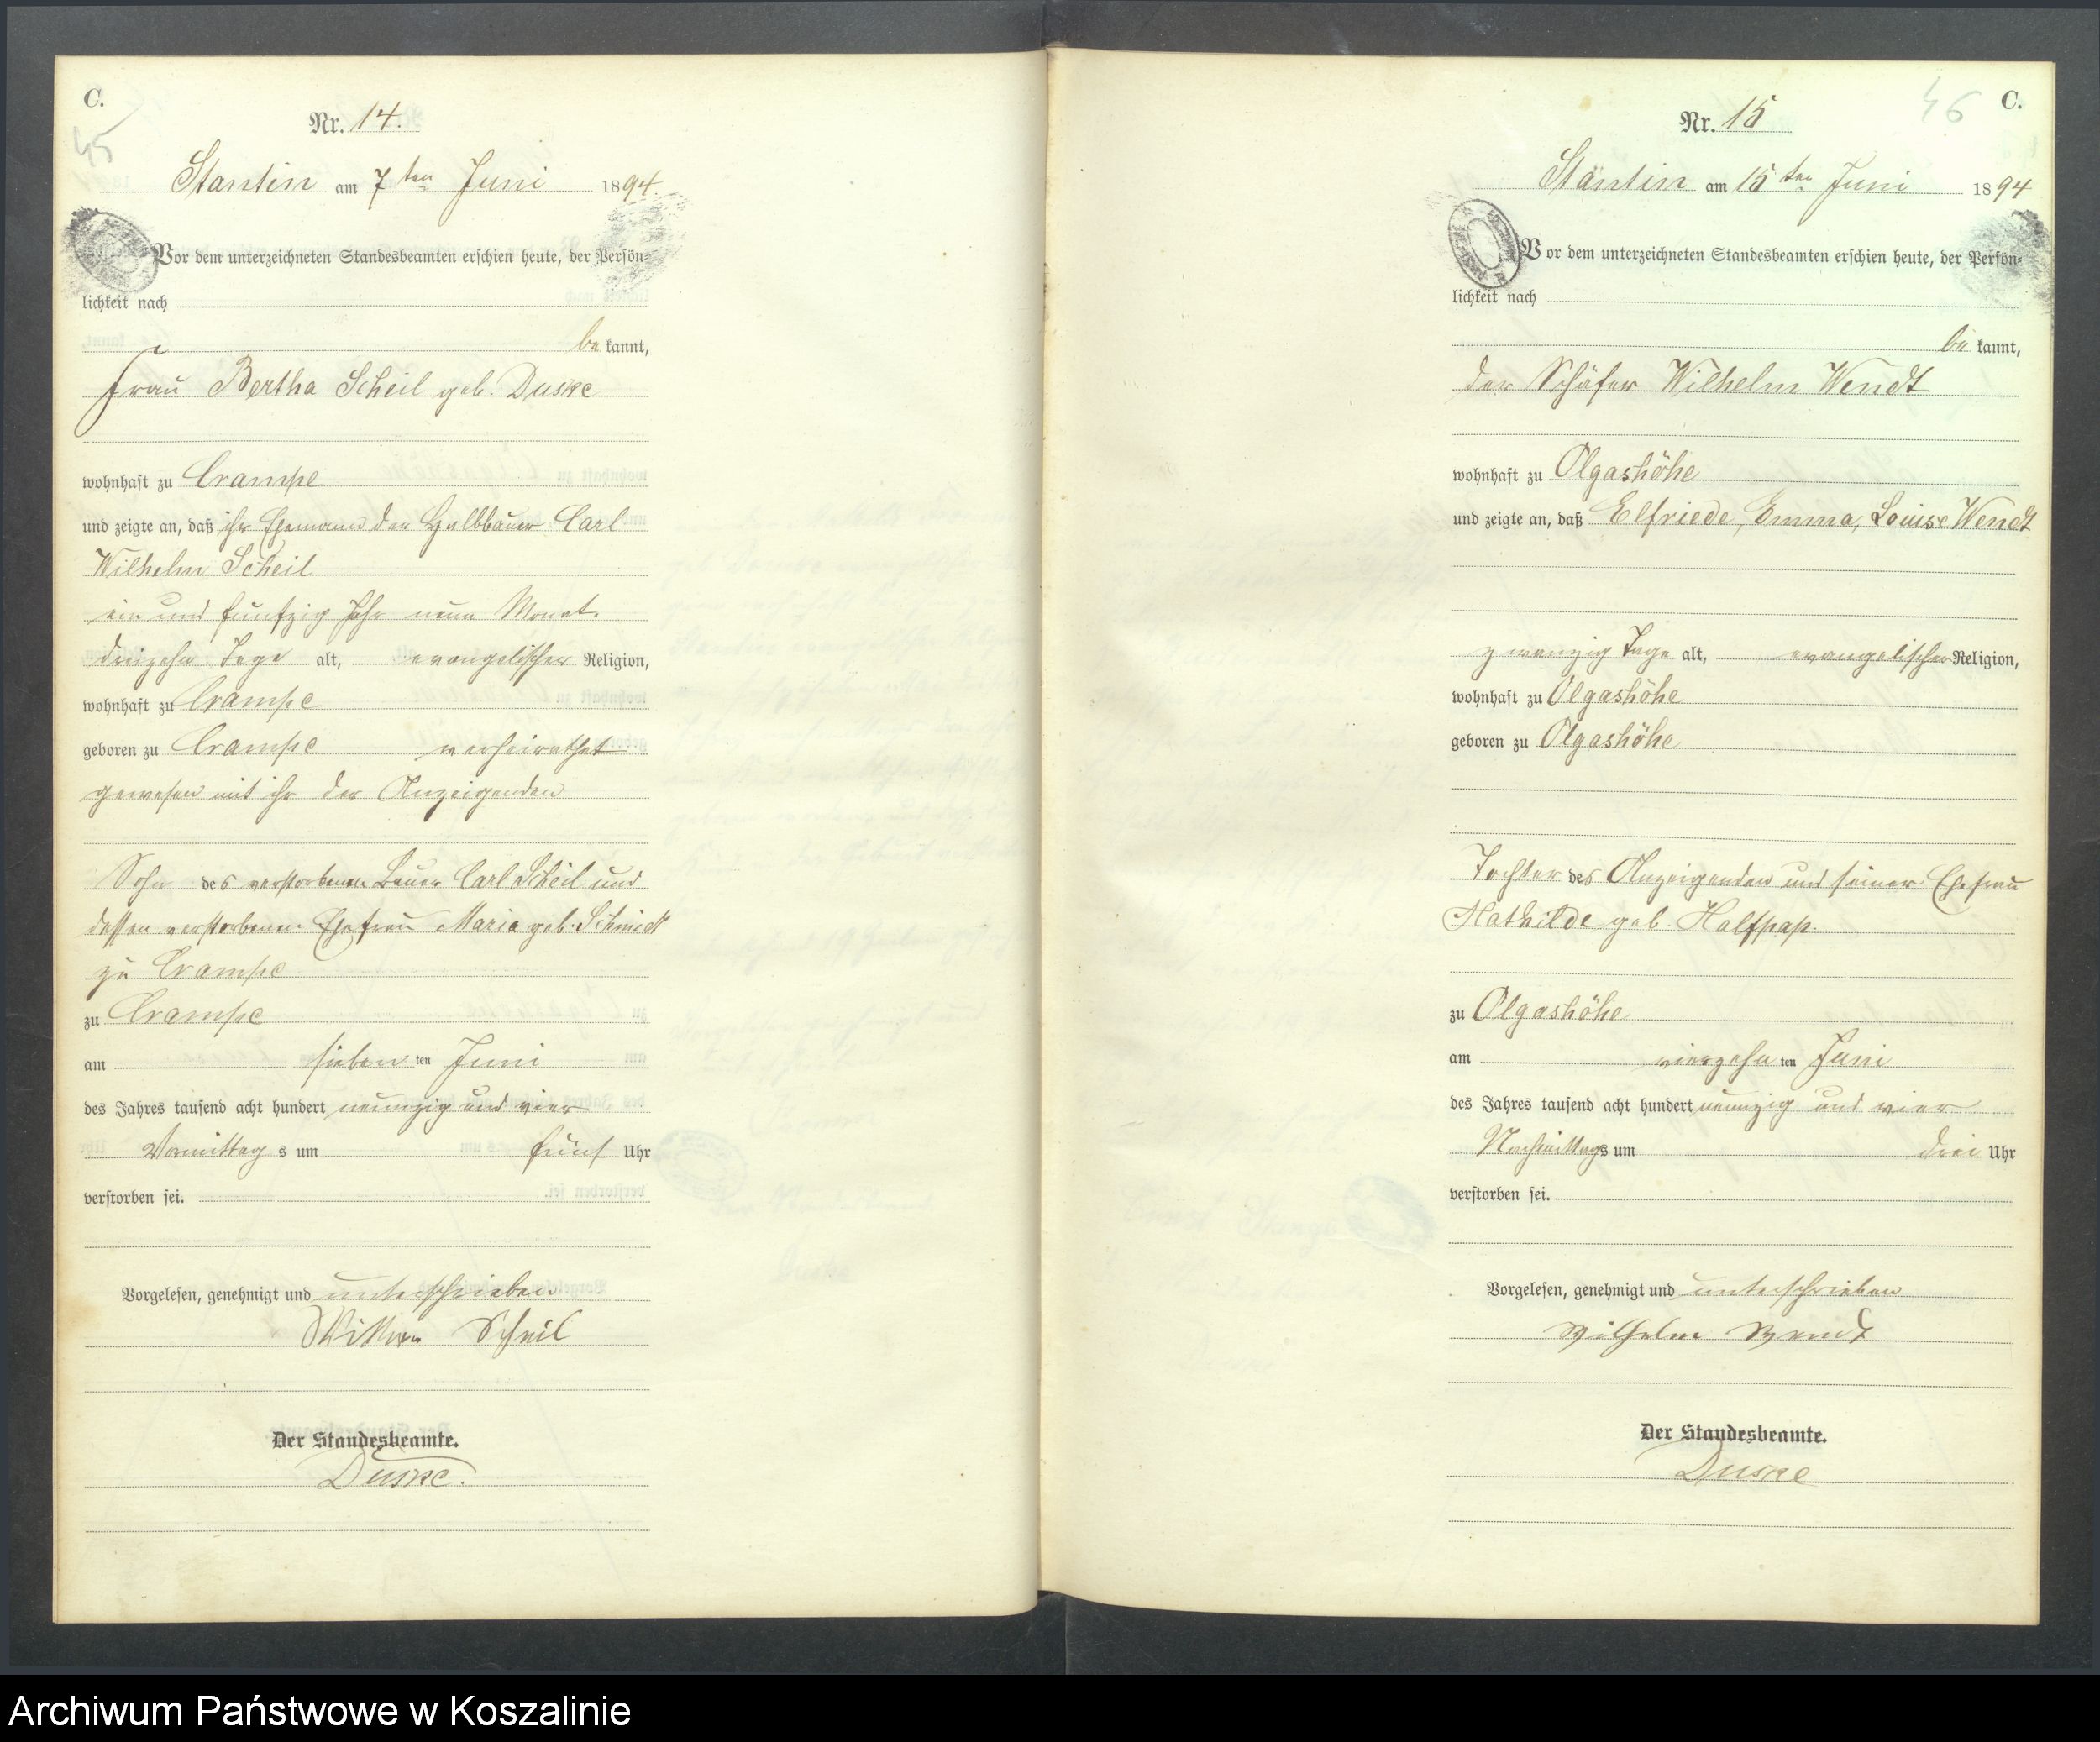 C.
45
Nr. 14.
Stantin am 7ten Juni 1894.
Vor dem unterzeichneten Standesbeamten erschien heute, der Persön-
lichkeit nach
bekannt,
Frau Bertha Scheil geb. Duske
wohnhaft zu Crampe
und zeigte an, daß ihr Ehemann der Halbbauer Carl
Wilhelm Scheil
ein und funfzig Jahr neun Monat
dreizehn Tage alt, evangelischer Religion,
wohnhaft zu Crampe
geboren zu Crampe verheirathet
gewesen mit ihr der Anzeigenden
Sohn des verstorbenen Bauer Carl Scheil und
dessen verstorbenen Ehefrau Maria geb. Schmidt
zu Crampe
zu Crampe
am sieben ten Juni
des Jahres tausend acht hundert neunzig und vier
Vormittags um fünf Uhr
verstorben sei.
Vorgelesen, genehmigt und unterschrieben
Scheil
Der Standesbeamte.
Duske.
46
C.
Nr. 15
Stäntin am 15ten Juni 1894
Vor dem unterzeichneten Standesbeamten erschien heute, der Persön-
lichkeit nach
bekannt,
der Schäfer Wilhelm Wendt
wohnhaft zu Olgashöhe
und zeigte an, daß Elfriede, Emma, Louise Wendt
zwanzig Tage alt, evangelischer Religion,
wohnhaft zu Olgashöhe
geboren zu Olgashöhe
Tochter des Anzeigenden und seiner Ehefrau
Mathilde geb. Halfpap.
zu Olgashöhe
am vierzehn ten Juni
des Jahres tausend acht hundert neunzig und vier
Nachmittags um drei Uhr
verstorben sei.
Vorgelesen, genehmigt und unterschrieben
Wilhelm Wendt
Der Standesbeamte.
Duske
Archiwum Państwowe w Koszalinie